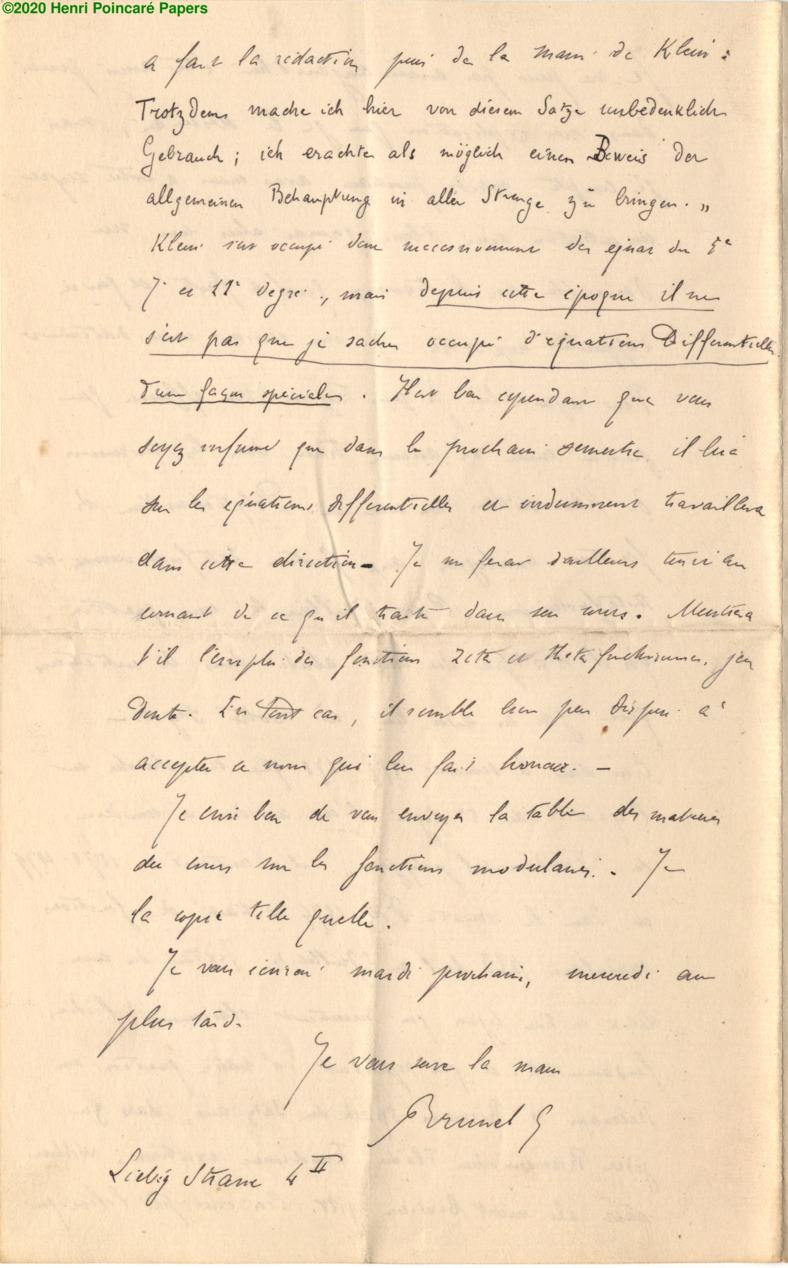 ©2020 Henri Poincaré Papers
a fait la rédaction puis de la main de Klein :
Trotzdem mache ich hier von diesem Satze unbedenklich
Gebrauch ; ich erachte als möglich einen Beweis der
allgemeinen Behauptung in aller Strenge zu bringen. „
Klein s'est occupé donc successivement des équat du 5e
7e et 11e degré, mais depuis cette époque il ne
s'est pas que je sache occupé d'équations Differentielles
d'une façon spéciale. Il est bon cependant que vous
soyez informé que dans le prochain semestre il lira
sur les équations differentielles et évidemment travaillera
dans cette direction – Je me ferai d'ailleurs tenir au
courant de ce qu'il traite dans son cours. Montrera
t'il l'emploi des fonctions zeta et theta fuchsiennes, j'en
doute. En tout cas, il semble bien peu disposé à
accepter ce nom qui leur fait honneur. –
Je crois bon de vous envoyer la table des matières
du cours sur les fonctions modulaires. – Je
la copie telle quelle.
Je vous écrirai mardi prochain, mercredi au
plus tard.
Je vous serre la main
Brunel G
Liebig Strasse 4 II